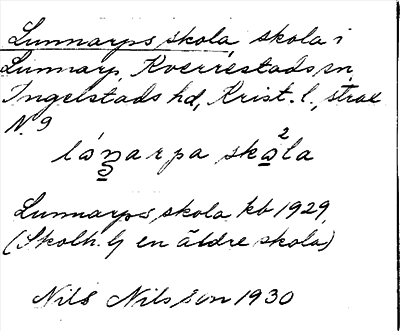 Lunnarps skola, skola i
Lunnarp, Kverrestads sn,
Ingelstads hd, Krist. l., strax
N. 9
lánarpa skola
Lunnarps skola kb 1929,
(Skolh. o en äldre skola)
Nils Nilsson 1930